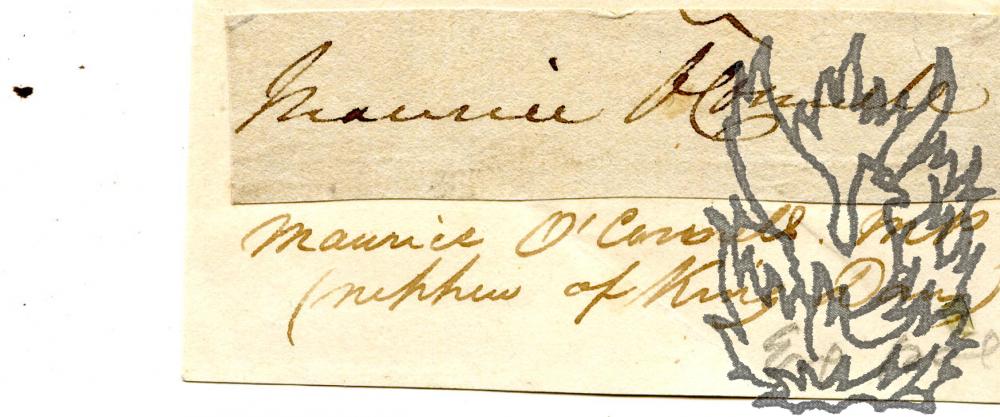 Maurice O'Connell
Maurice O'Connell. MP
(nephew of King Dan)